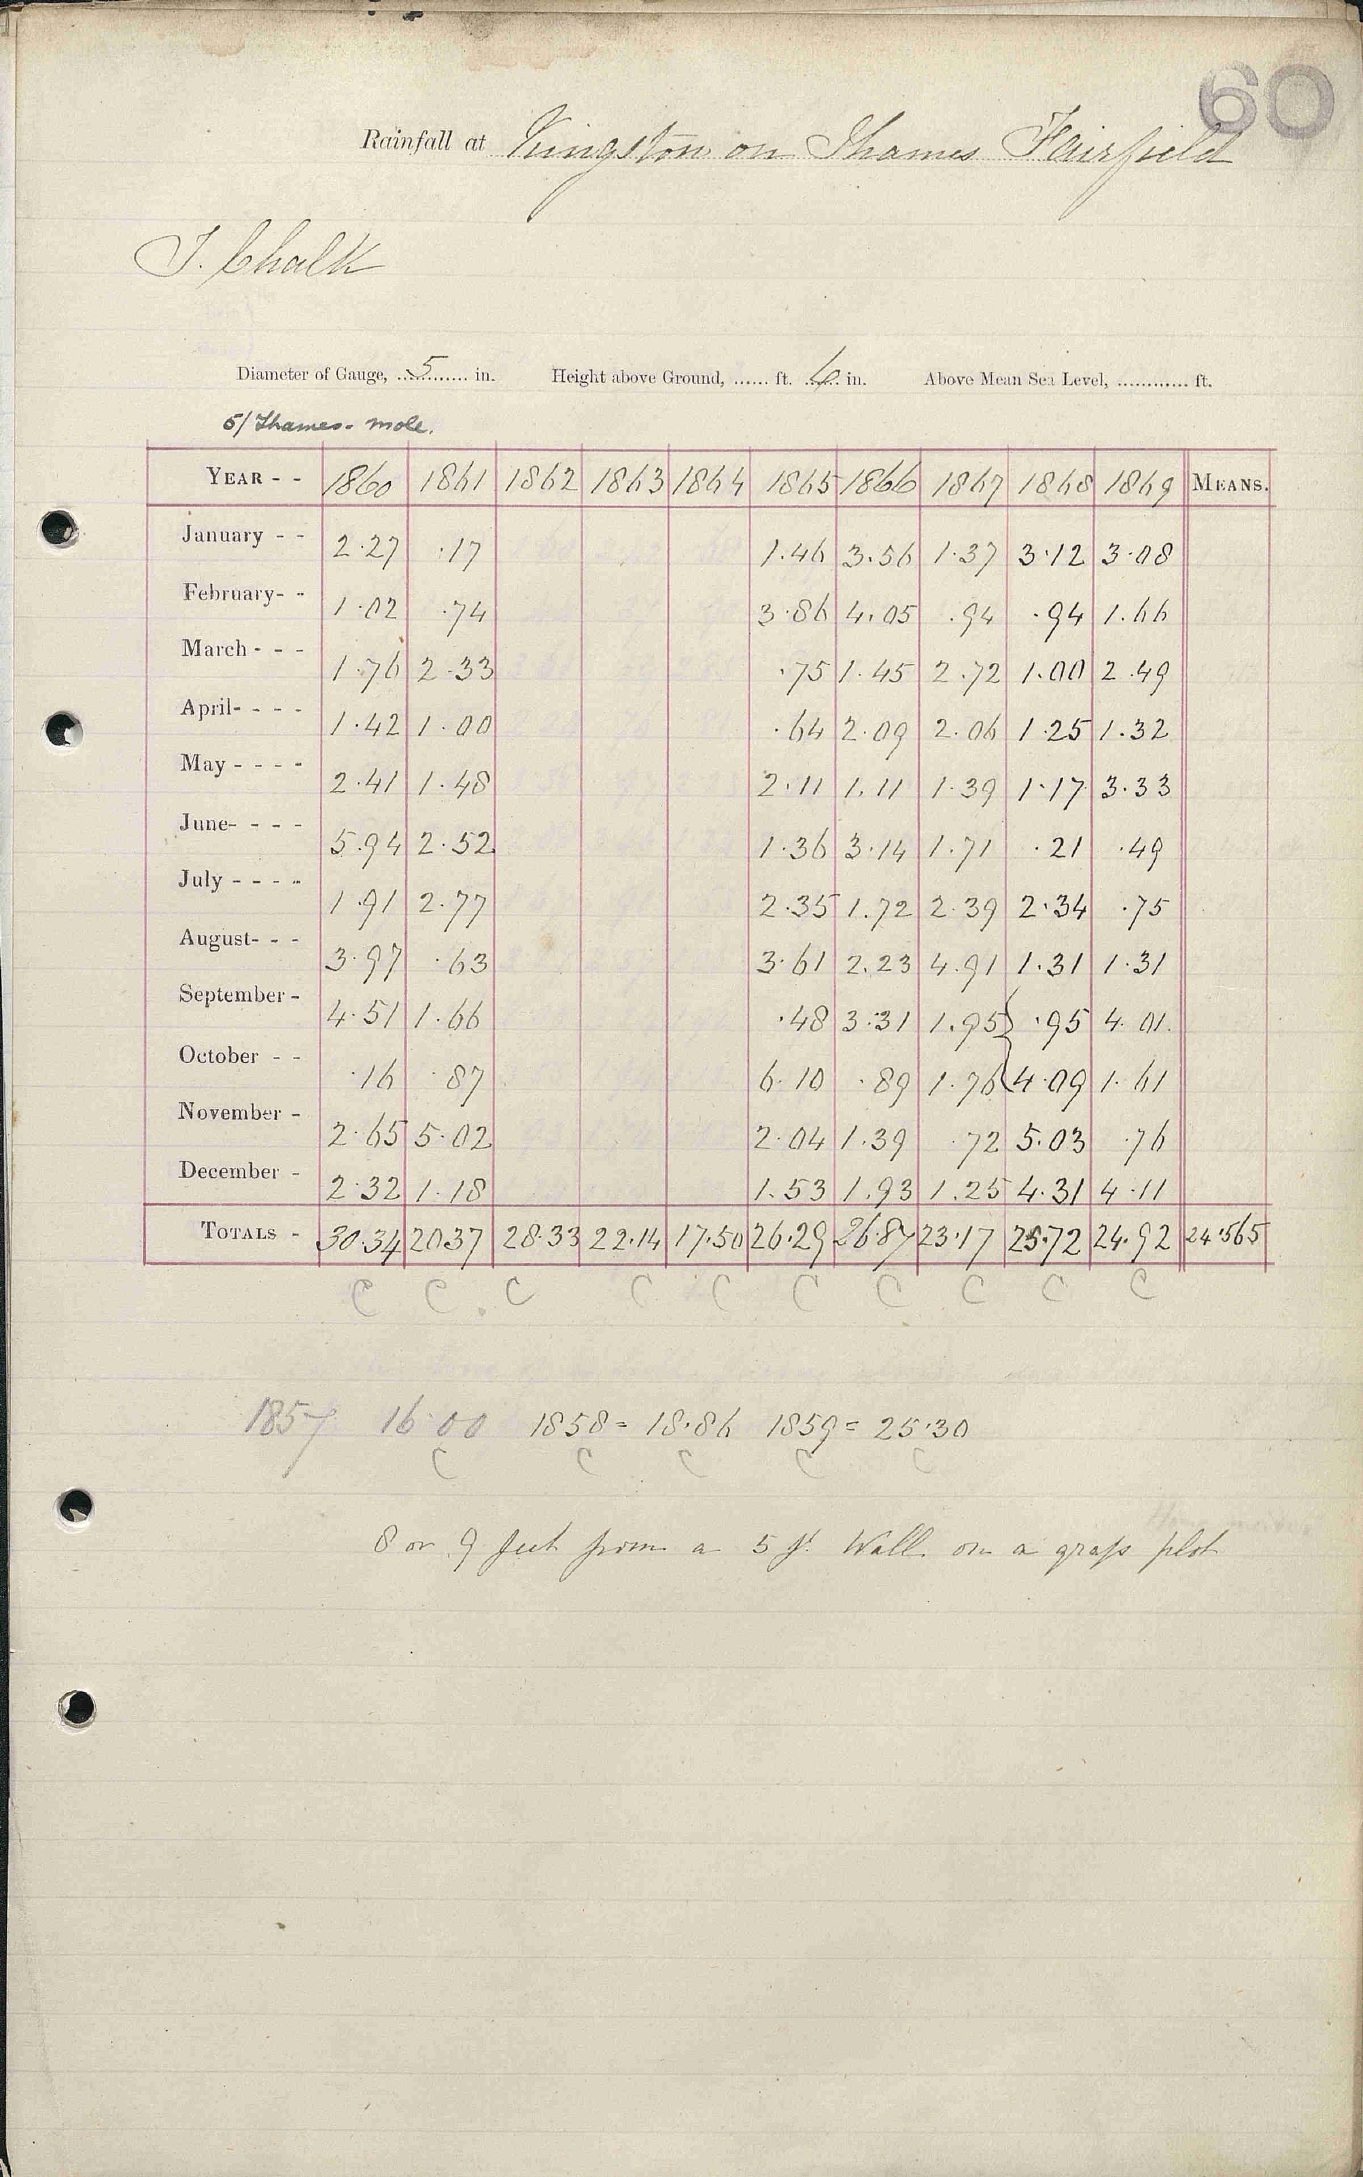 60
Rainfall at Kingston on Thames Fairfield
J. Chalk
Diameter of Gauge, ...5... in. Height above Ground, ...... ft. 6 in. Above Mean Sea Level, ............ ft.
5/ Thames - Mole.
YEAR - - 1860 1861 1862 1863 1864 1865 1866 1867 1868 1869 MEANS.
January - - 2.27 .17 1.46 3.56 1.37 3.12 3.08
February - - 1.02 .74 3.86 4.05 .94 .94 1.66
March - - - 1.76 2.33 .75 1.45 2.72 1.00 2.49
April - - - - 1.42 1.00 .64 2.09 2.06 1.25 1.32
May - - - - 2.41 1.48 2.11 1.11 1.39 1.17 3.33
June - - - - 5.94 2.52 1.36 3.14 1.71 .21 .49
July - - - - 1.91 2.77 2.35 1.72 2.39 2.34 .75
August - - - 3.97 .63 3.61 2.23 4.91 1.31 1.31
September - 4.51 1.66 .48 3.31 1.95 .95 4.01
October - - .16 .87 6.10 .89 1.76 4.09 1.61
November - 2.65 5.02 2.04 1.39 .72 5.03 .76
December - 2.32 1.18 1.53 1.93 1.25 4.31 4.11
TOTALS - 30.34 20.37 28.33 22.14 17.50 26.29 26.87 23.17 25.72 24.92 24.565
C C C C C C C C C C
1857 16.00 1858 = 18.86 1859 = 25.30
C C C C C
8 or 9 feet from a 5 ft Wall on a grass plot